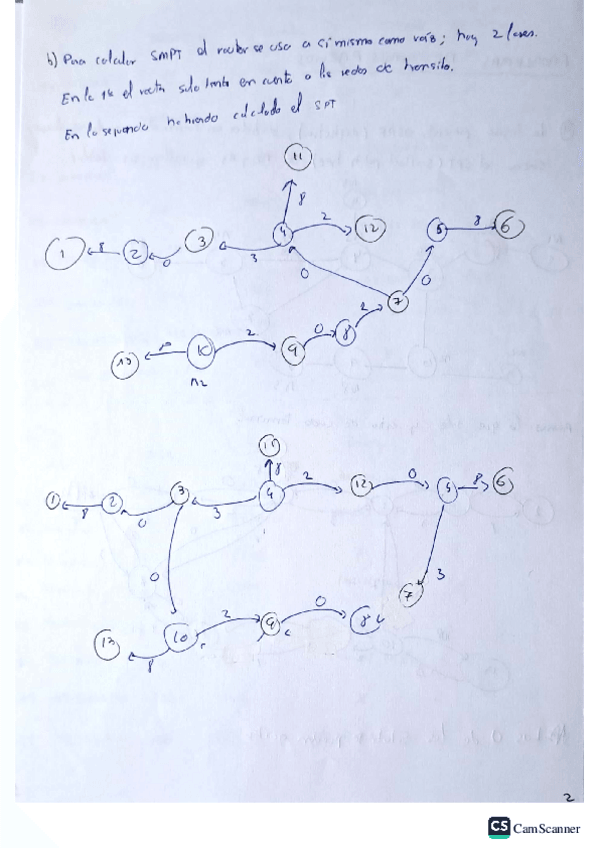 b) Para calcular SMPT el router se usa a si mismo como raíz; hay 2 fases.
En la 1ª el router solo tenta en cuenta a las redes de transito.
En la segunda habiendo calculado el SPT
11
8
1 8 2 0 3 3 4 2 12 5 8 6
0 7 0
13 10 2 9 0 8 2
R2
11
8
1 8 2 0 3 3 4 2 12 0 5 8 6
0 3
7
13 8 10 2 9 0 8
2
CS CamScanner